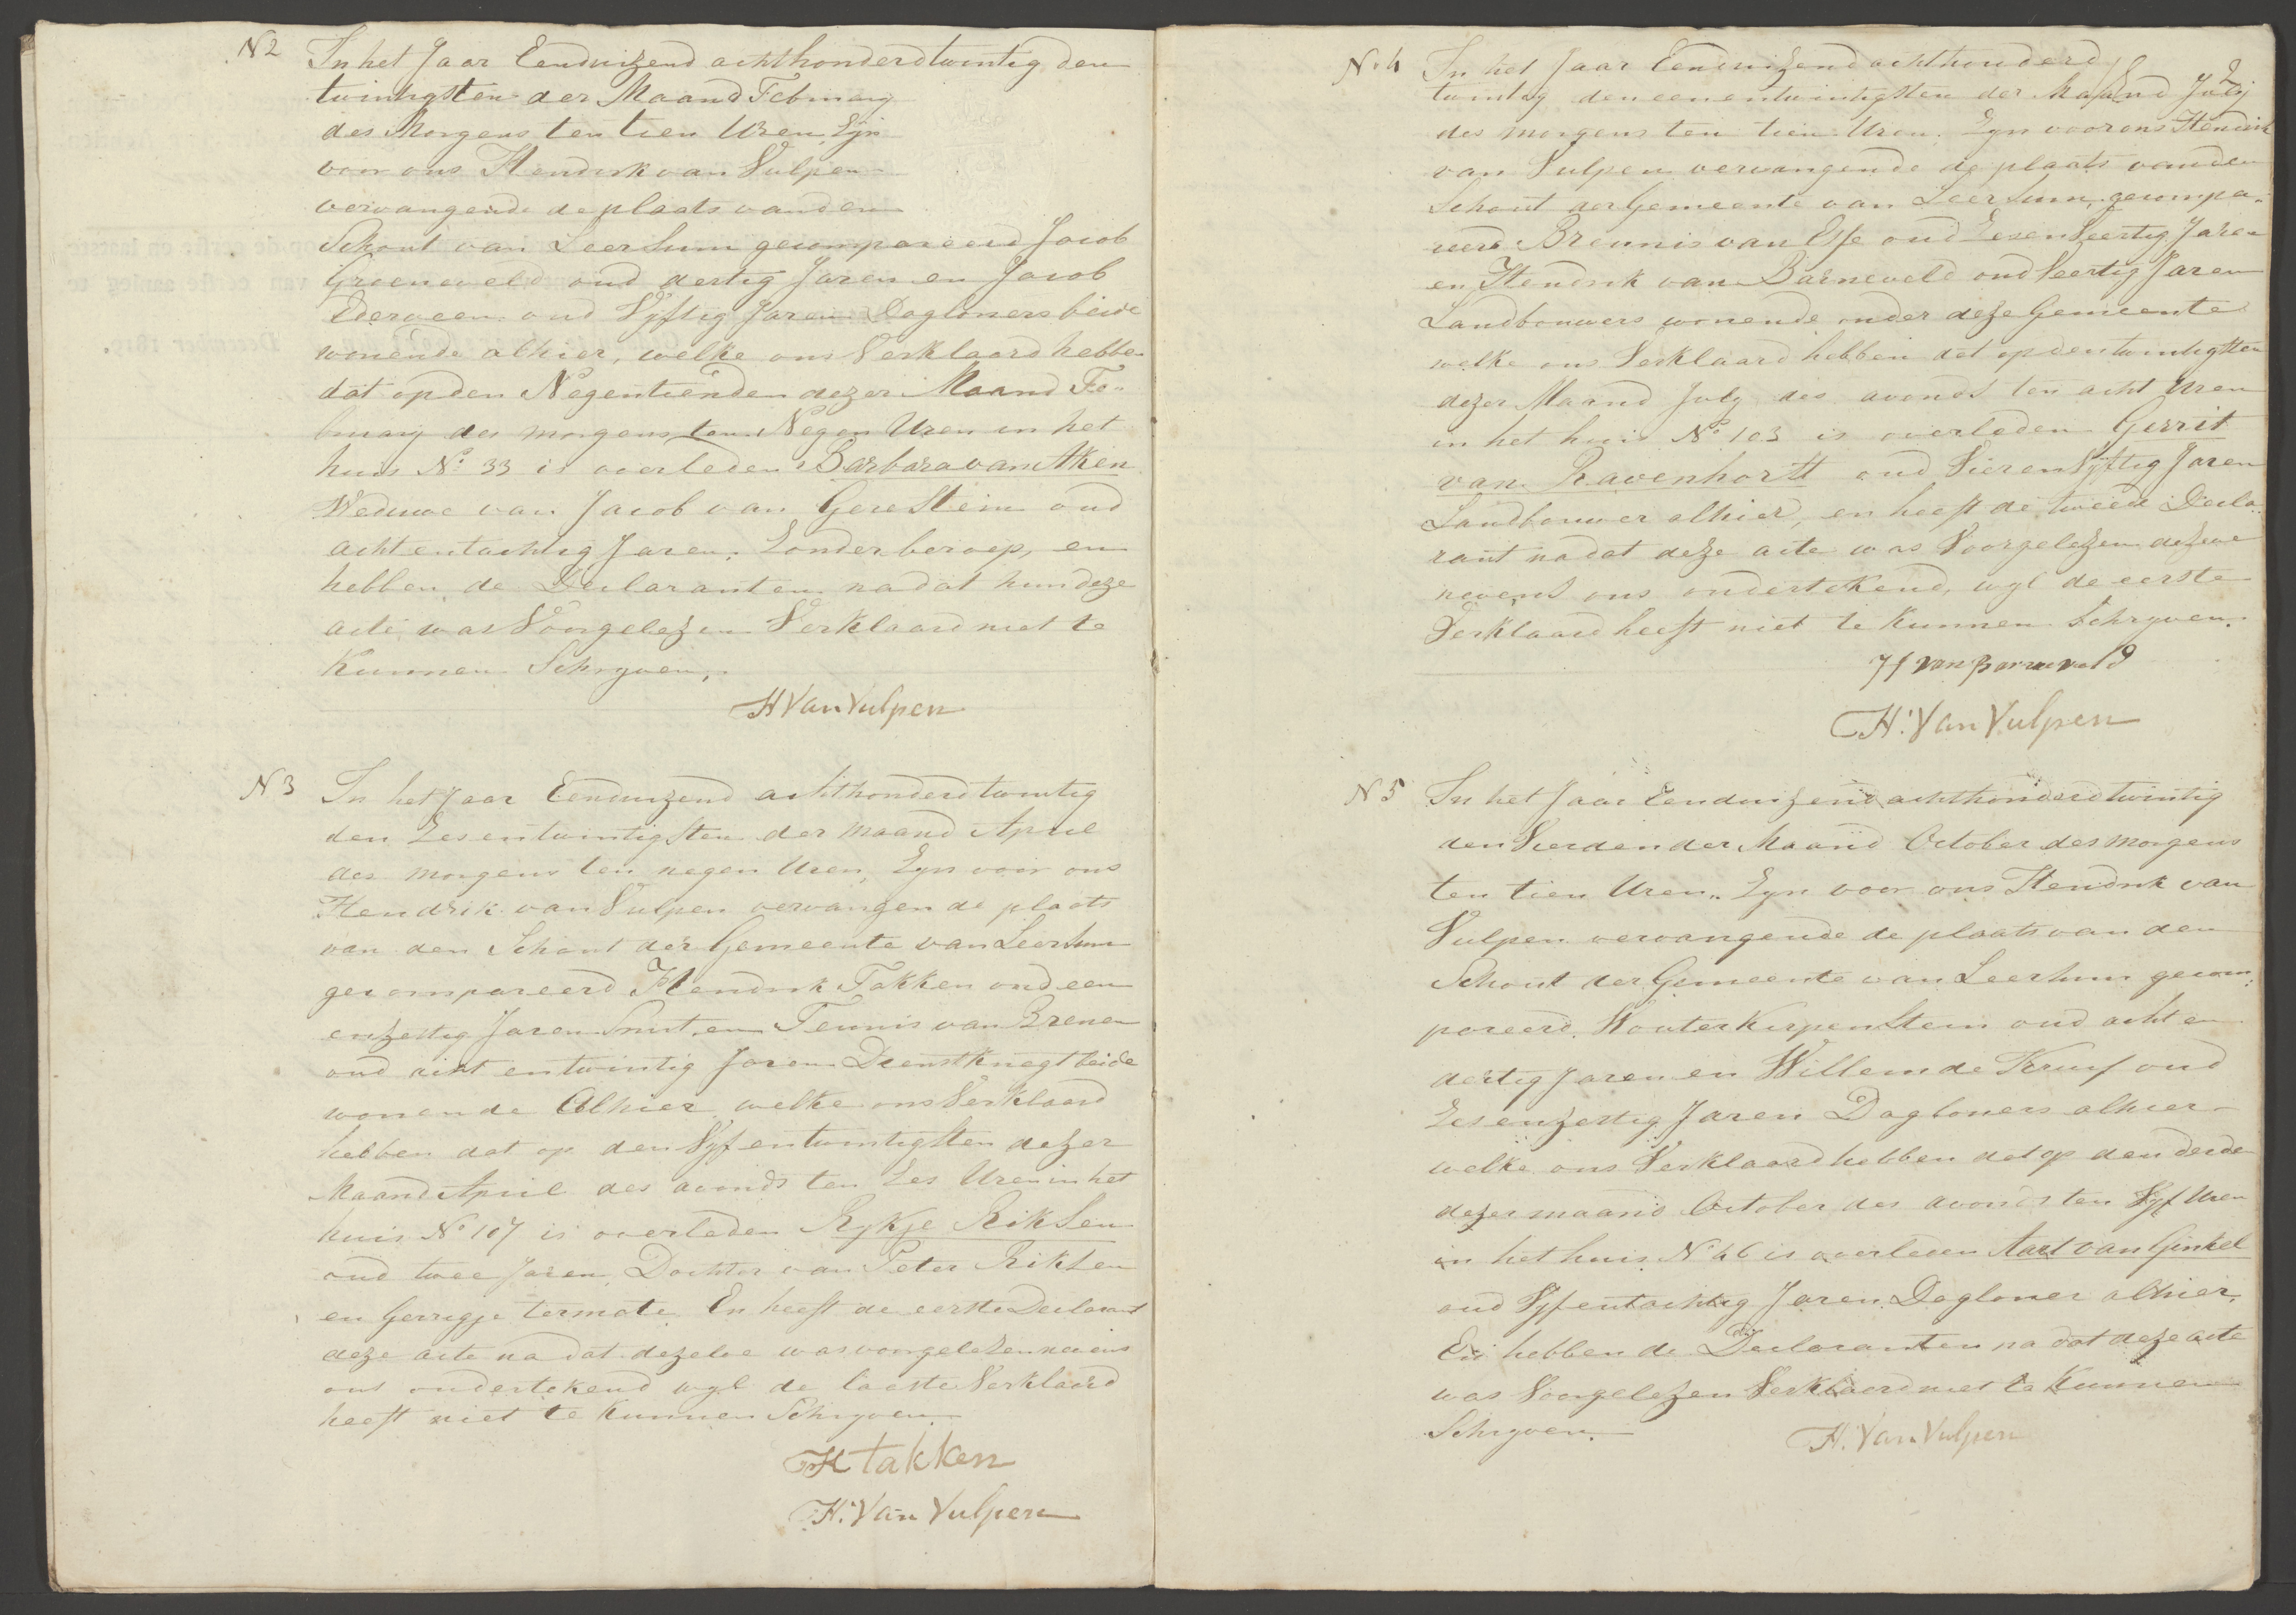 N 2
In het Jaar Eenduizend achthonderd twintig den
twintigsten der Maand February
des Morgens ten tien Uren, Zyn
voor ons Hendrik van Vulpen
vervangende de plaats van den
Schout van Leersum gecompareerd Jacob
Groeneveld oud dertig Jaren en Jacob
Ederveen oud Vyftig Jaren Dagloners beide
wonende alhier, welke ons Verklaard hebbe
dat op den Negentienden dezer Maand Fe„
bruary des morgens ten Negen Uren in het
huis No 33 is overleden Barbara van Aken
Weduwe van Jacob van Gerestein oud
achtentachtig Jaren, Zonder beroep, en
hebben de Declaranten nadat hun deze
acte was Voorgelezen Verklaard niet te
Kunnen Schryven.
H Van Vulpen
N 3
In het Jaar Eenduizend achthonderd twintig
den Zesentwintigsten der maand April
des morgens ten negen Uren, Zyn voor ons
Hendrik van Vulpen vervangende plaats
van den Schout der Gemeente van Leersum
gecompareerd Hendrik Takken oud een
enzestig Jaren Smit, en Teunis van Brenen
oud acht entwintig Jaren Dienstknegt beide
wonende Alhier welke ons Verklaard
hebben dat op den Vyfentwintigsten dezer
Maand April des avonds ten Zes Uren in het
huis No 107 is overleden Rykje Riksen
oud twee Jaren, Dochter van Peter Riksen
en Gerrigje termate. En heeft de eerste Declarant
deze acte na dat dezelve was voorgelezen nevens
ons ondertekend wyl de laeste Verklaard
heeft niet te kunnen Schryven.
H takken
H. Van Vulpen
No 4
In het Jaar Eenduizend achthonderd
twintig den eenentwintigsten der Maand July
des morgens ten tien Uren. Zyn voor ons Hendrik
van Vulpen vervangende de plaats van den
Schout der Gemeente van Leersum, gecompa„
reerd Breunis van Esse oud Zesenveertig Jaren
en Hendrik van Barneveld oud Veertig Jaren
Landbouwers wonende onder deze Gemeente
welke ons Verklaard hebben dat op den twintigsten
dezer Maand July des avonds ten acht Uren
in het huis No 103 is overleden Gerrit
van Ravenhorst oud Vierenvyftig Jaren
Landbouwer alhier, en heeft de tweede Decla„
rant nadat deze acte was Voorgelezen dezelve
nevens ons ondertekend, wyl de eerste
Verklaard heeft niet te kunnen Schryven.
H van Barneveld
H. Van Vulpen
N 5
In het Jaar Eenduizend achthonderd twintig
den Vierden der Maand October des morgens
ten tien Uren„ Zyn voor ons Hendrik van
Vulpen vervangende de plaats van den
Schout der Gemeente van Leersum gecom„
pareerd Wouter Kerpenstein oud acht en
dertig Jaren en Willem de Kruyf oud
Zesenzestig Jaren Dagloners alhier
welke ons Verklaard hebben dat op den derde
dezer maand October des avonds ten Vyf Uren
in het huis N 46 is overleden Aart van Ginkel
oud Vyfentachtig Jaren Dagloner alhier.
En hebben de Declaranten na dat deze acte
was Voorgelezen Verklaard niet te Kunnen
Schryven.
H. Van Vulpen